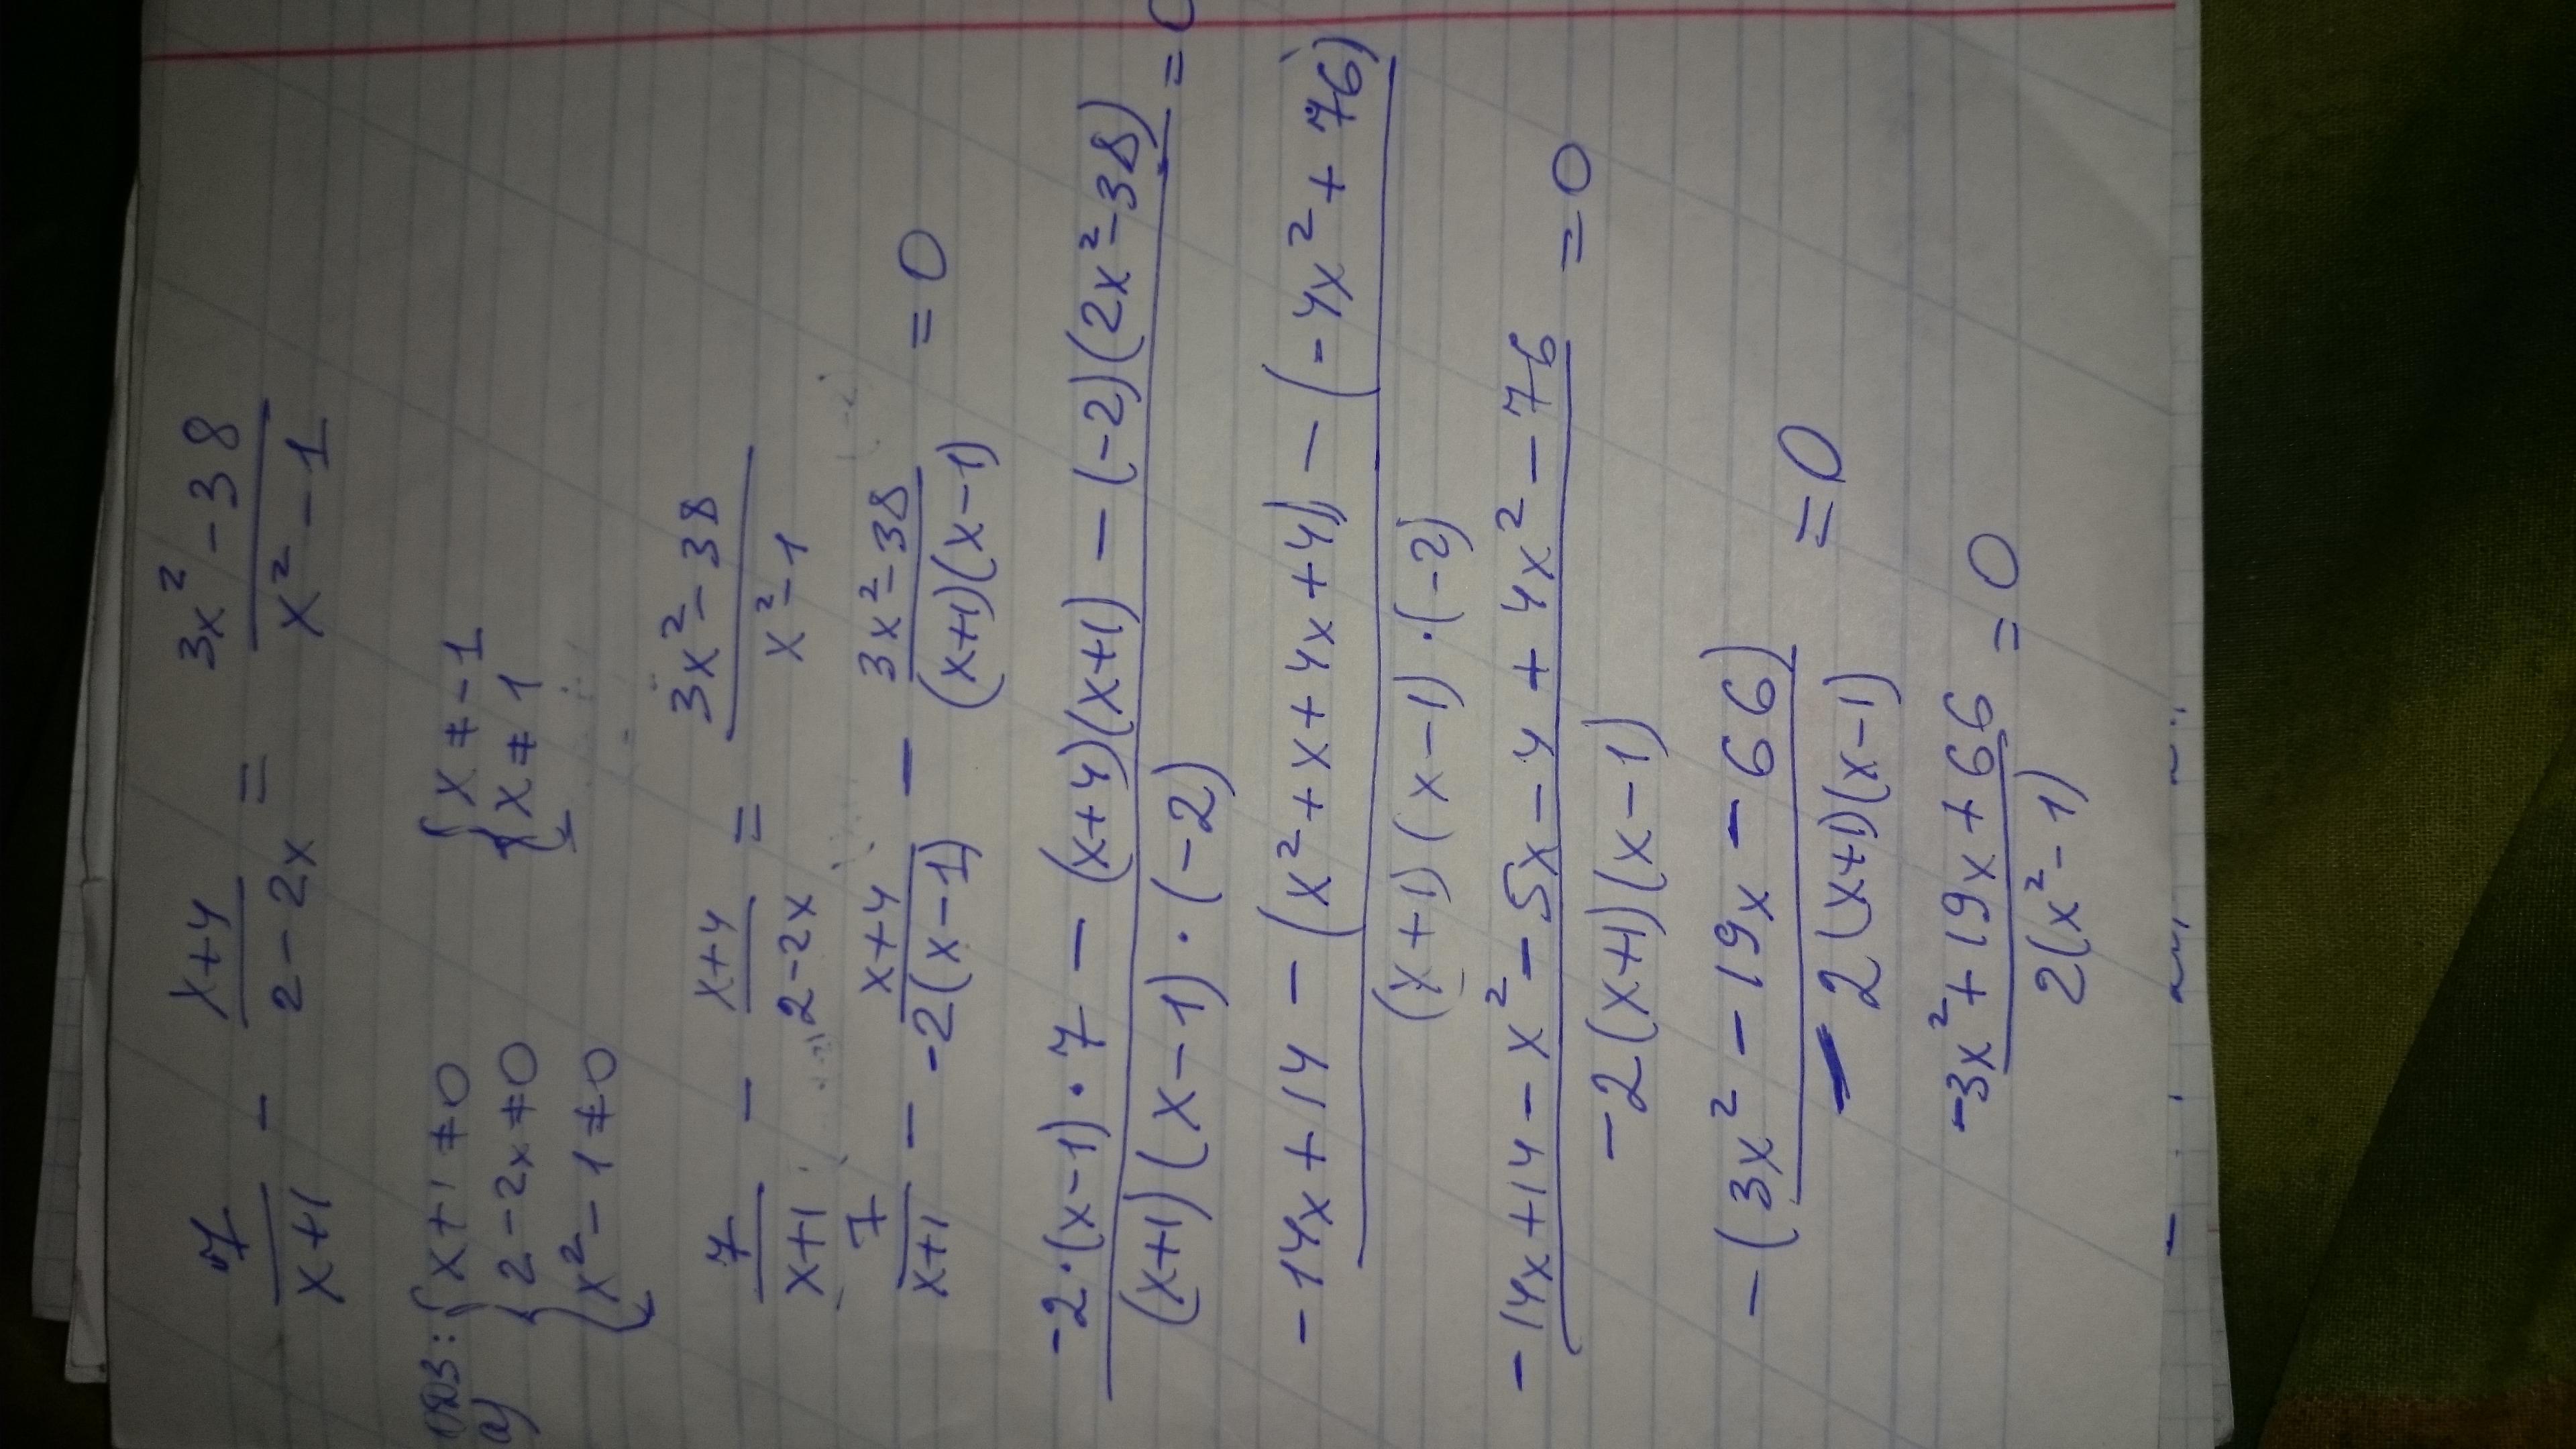 7/(x+1) - (x+4)/(2-2x) = (3x² - 38)/(x² - 1)
ОДЗ: { x+1 ≠ 0 { x ≠ -1
a) 2-2x ≠ 0 x ≠ 1
x² - 1 ≠ 0
7/(x+1) - (x+4)/(2-2x) = (3x² - 38)/(x² - 1)
7/(x+1) - (x+4)/(-2(x-1)) - (3x² - 38)/((x+1)(x-1)) = 0
(-2·(x-1)·7 - (x+4)(x+1) - (-2)(2x² - 38))/((x+1)(x-1)·(-2)) = 0
(-14x + 14 - (x² + x + 4x + 4) - (-4x² + 76))/((x+1)(x-1)·(-2))
(-14x + 14 - x² - 5x - 4 + 4x² - 76)/(-2(x+1)(x-1)) = 0
(-(3x² - 19x - 66))/(-2(x+1)(x-1)) = 0
(-3x² + 19x + 66)/(2(x² - 1)) = 0